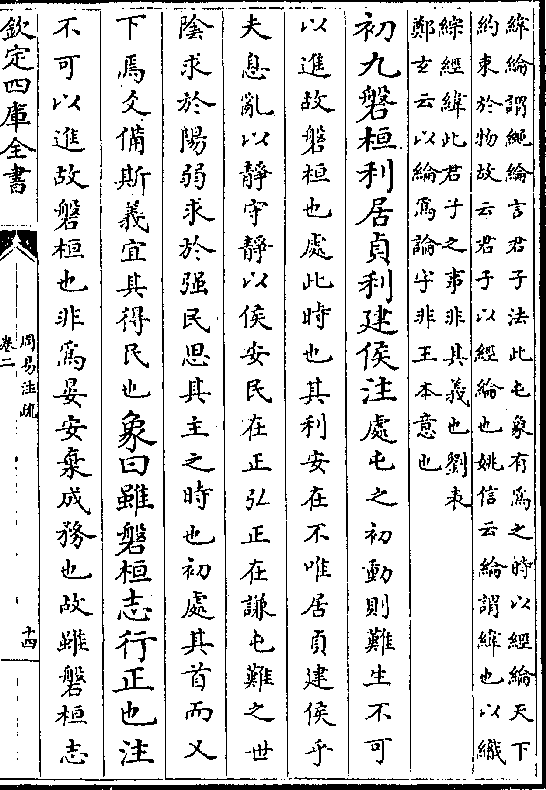 緯綸謂䋲綸言君子法此屯象有為之時以經綸天下
約束於物故云君子以經綸也姚信云綸謂緯也以織
綜經緯此君子之事非其義也劉表
鄭𤣥云以綸為論字非王本意也
初九磐桓利居貞利建侯注處屯之初動則難生不可
以進故磐桓也處此時也其利安在不唯居貞建侯乎
夫息亂以静守静以侯安民在正弘正在謙屯難之世
陰求於陽弱求於强民思其主之時也初處其首而又
下焉爻備斯義宜其得民也象曰雖磐桓志行正也注
不可以進故磐桓也非為晏安棄成務也故雖磐桓志
欽定四庫全書
周易注疏
卷二
十四